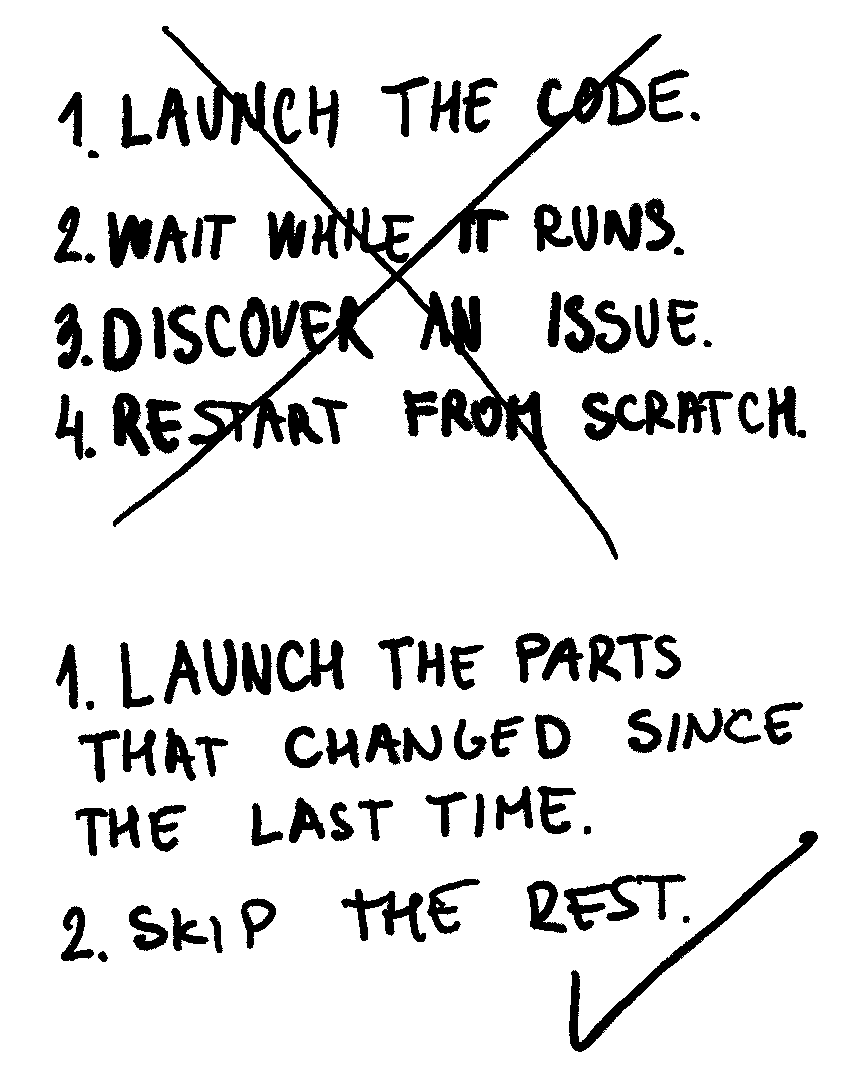 1. LAUNCH THE CODE.
2. WAIT WHILE IT RUNS.
3. DISCOVER AN ISSUE.
4. RESTART FROM SCRATCH.
1. LAUNCH THE PARTS
THAT CHANGED SINCE
THE LAST TIME.
2. SKIP THE REST.